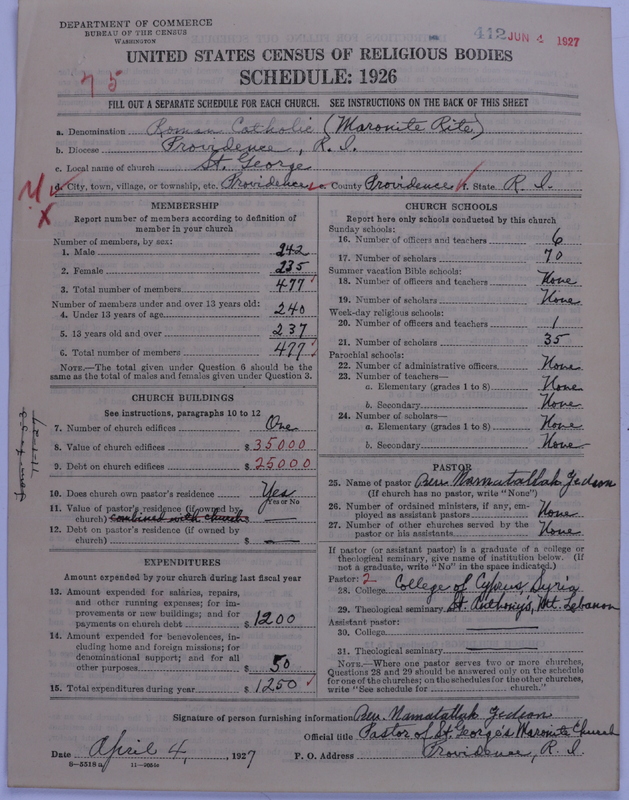 DEPARTMENT OF COMMERCE
BUREAU OF THE CENSUS
WASHINGTON
412 JUN 4 1927
UNITED STATES CENSUS OF RELIGIOUS BODIES
SCHEDULE: 1926
75
FILL OUT A SEPARATE SCHEDULE FOR EACH CHURCH. SEE INSTRUCTIONS ON THE BACK OF THIS SHEET
a. Denomination Roman Catholic (Maronite Rite)
b. Diocese Providence, R. I.
c. Local name of church St. George
d. City, town, village, or township, etc. Providence e. County Providence f. State R. I.
MEMBERSHIP
Report number of members according to definition of
member in your church
Number of members, by sex:
1. Male 242
2. Female 235
3. Total number of members 477
Number of members under and over 13 years old:
4. Under 13 years of age 240
5. 13 years old and over 237
6. Total number of members 477
NOTE.—The total given under Question 6 should be the
same as the total of males and females given under Question 3.
CHURCH BUILDINGS
See instructions, paragraphs 10 to 12
7. Number of church edifices One
8. Value of church edifices $ 35000
9. Debt on church edifices $ 25000
10. Does church own pastor's residence Yes
Yes or No
11. Value of pastor's residence (if owned by
church) combined with church $ —
12. Debt on pastor's residence (if owned by
church) $ —
EXPENDITURES
Amount expended by your church during last fiscal year
13. Amount expended for salaries, repairs,
and other running expenses; for im-
provements or new buildings; and for
payments on church debt $ 1200
14. Amount expended for benevolences, in-
cluding home and foreign missions; for
denominational support; and for all
other purposes $ 50
15. Total expenditures during year $ 1250
CHURCH SCHOOLS
Report here only schools conducted by this church
Sunday schools:
16. Number of officers and teachers 6
17. Number of scholars 70
Summer vacation Bible schools:
18. Number of officers and teachers None
19. Number of scholars None
Week-day religious schools:
20. Number of officers and teachers 1
21. Number of scholars 35
Parochial schools:
22. Number of administrative officers None
23. Number of teachers—
a. Elementary (grades 1 to 8) None
b. Secondary None
24. Number of scholars—
a. Elementary (grades 1 to 8) None
b. Secondary None
PASTOR
25. Name of pastor Rev. Namatallah Gedson
(If church has no pastor, write "None")
26. Number of ordained ministers, if any, em-
ployed as assistant pastors None
27. Number of other churches served by the
pastor or his assistants None
If pastor (or assistant pastor) is a graduate of a college or
theological seminary, give name of institution below. (If
not a graduate, write "No" in the space indicated.)
Pastor: 2
28. College College of Cyprus Syria
29. Theological seminary St. Anthony's, Mt. Lebanon
Assistant pastor:
30. College
31. Theological seminary
NOTE.—Where one pastor serves two or more churches,
Questions 28 and 29 should be answered only on the schedule
for one of the churches; on the schedules for the other churches,
write "See schedule for church."
Signature of person furnishing information Rev. Namatallah Gedson
Official title Pastor of St. George's Maronite Church
Date April 4, 1927 P. O. Address Providence, R. I.
8-5518a